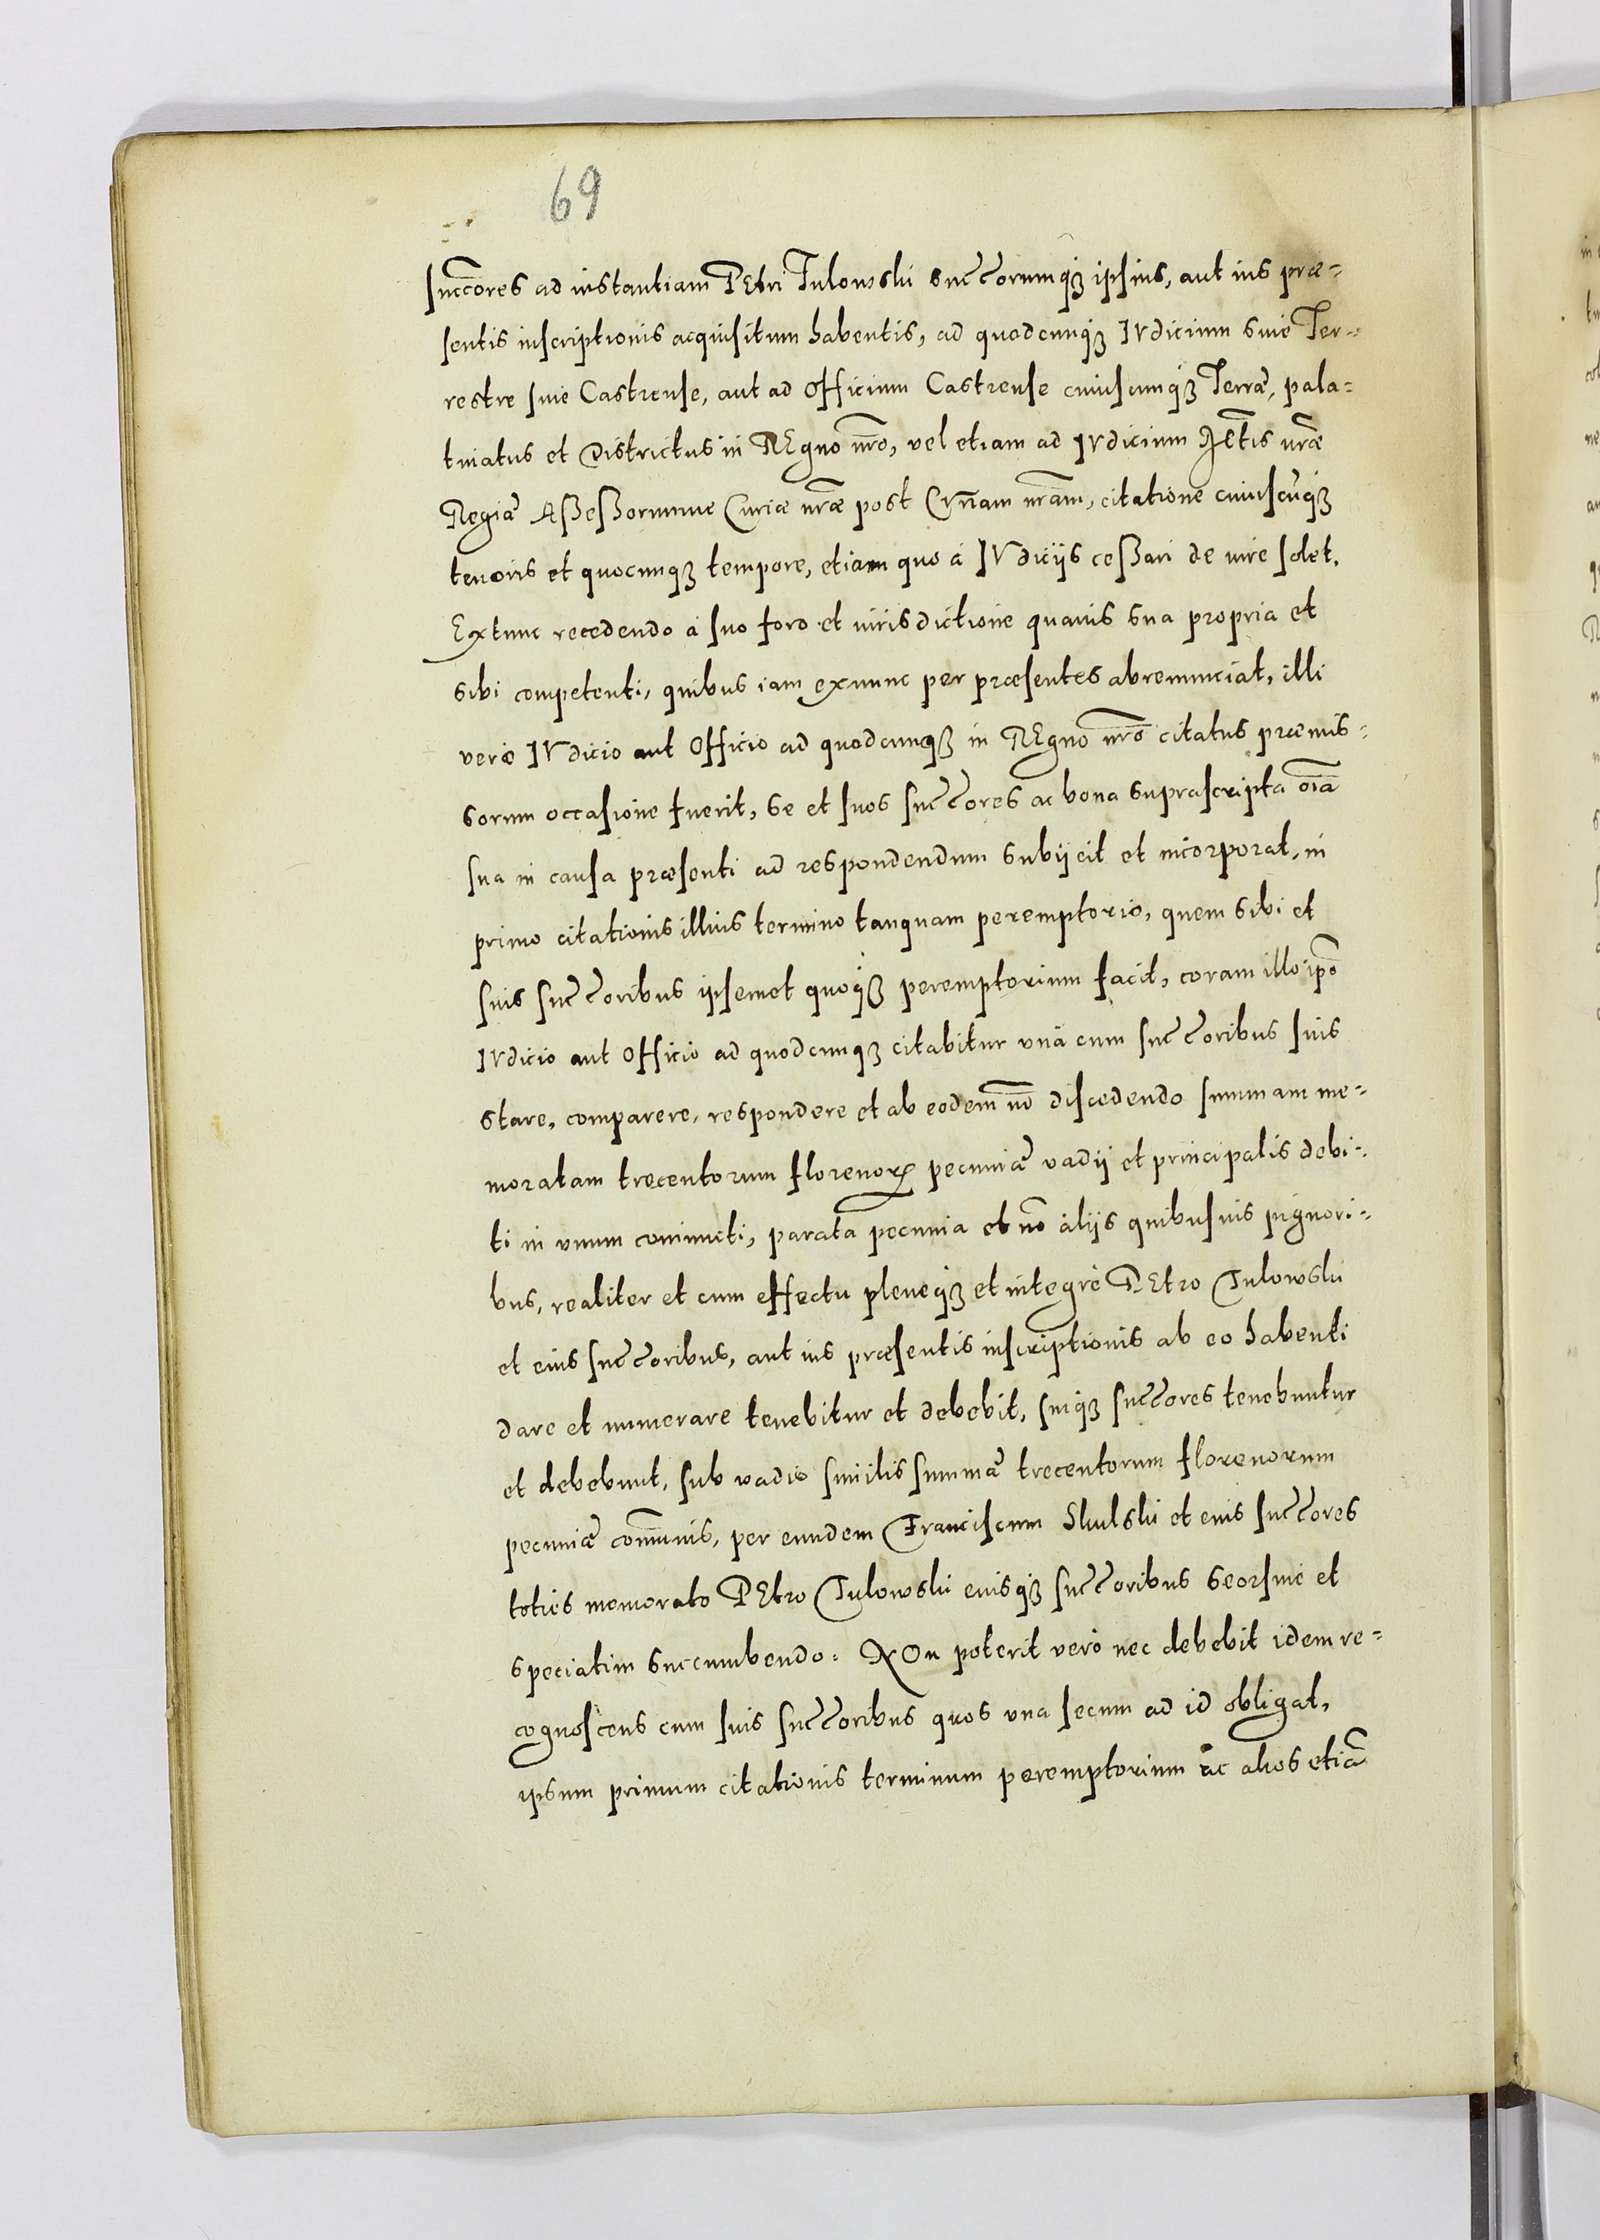 69
succores ad instantiam PEtri Tulowski succorumqȝ ipsius, aut ius præ-
sentis inscriptionis acquisitum habentis, ad quodcunqȝ IVdicium siue Ter-
restre siue Castrense, aut ad Officium Castrense cuiuscunqȝ Terræ, pala-
tinatus et Districtus in REgno nr̄o, vel etiam ad IVdicium Mtis nr̄æ
Regiæ Aßeßorumue Curiæ nr̄æ post Cr̄iam nr̄am, citatione cuiuscūqȝ
tenoris et quocunqȝ tempore, etiam quo à IVdicijs ceßari de iure solet.
Extunc recedendo à suo foro et iurisdictione quauis sua propria et
sibi competenti, quibus iam exnunc per præsentes abrenunciat, illi
verò IVdicio aut Officio ad quodcunqȝ in REgno nr̄o citatus præmis-
sorum occasione fuerit, se et suos succores ac bona suprascripta oīa
sua in causa præsenti ad respondendum subijcit et incorporat, in
primo citationis illius termino tanquam peremptorio, quem sibi et
suis succoribus ipsemet quoqȝ peremptorium facit, coram illo ip̄o
IVdicio aut Officio ad quodcunqȝ citabitur vnà cum succoribus suis
stare, comparere, respondere et ab eodem nō discedendo summam me-
moratam trecentorum florenoꝝ pecuniæ vadij et principalis debi-
ti in vnum coniuncti, parata pecunia et nō alijs quibusuis pignori-
bus, realiter et cum effectu pleneqȝ et integrè PEtro Tulowski
et eius succoribus, aut ius præsentis inscriptionis ab eo habenti
dare et numerare tenebitur et debebit, suiqȝ succores tenebuntur
et debebunt, sub vadio similis summæ trecentorum florenorum
pecuniæ com̄unis, per eundem Franciscum Skulski et eius succores
toties memorato PEtro Tulowski eiusqȝ succoribus seorsiue et
speciatim succumbendo. NOn poterit verò nec debebit idem re-
cognoscens cum suis succoribus quos vna secum ad id obligat,
ipsum primum citationis terminum peremptorium ac alios etiā